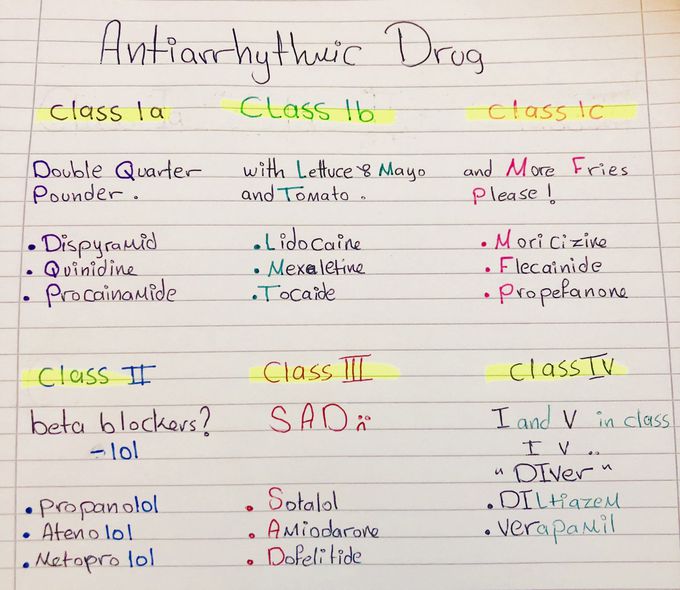 Antiarrhythmic Drug
Class Ia
Class Ib
Class Ic
Double Quarter
Pounder.
with Lettuce & Mayo
and Tomato.
and More Fries
Please!
• Dispyramid
• Quinidine
• Procainamide
• Lidocaine
• Mexeletine
• Tocaide
• Moricizine
• Flecainide
• Propefanone
Class II
Class III
Class IV
beta blockers?
-lol
SAD :(
I and V in class
I V ..
"DIver"
• Propanolol
• Atenolol
• Metoprolol
• Sotalol
• Amiodarone
• Dofelitide
• DILtiazem
• Verapamil